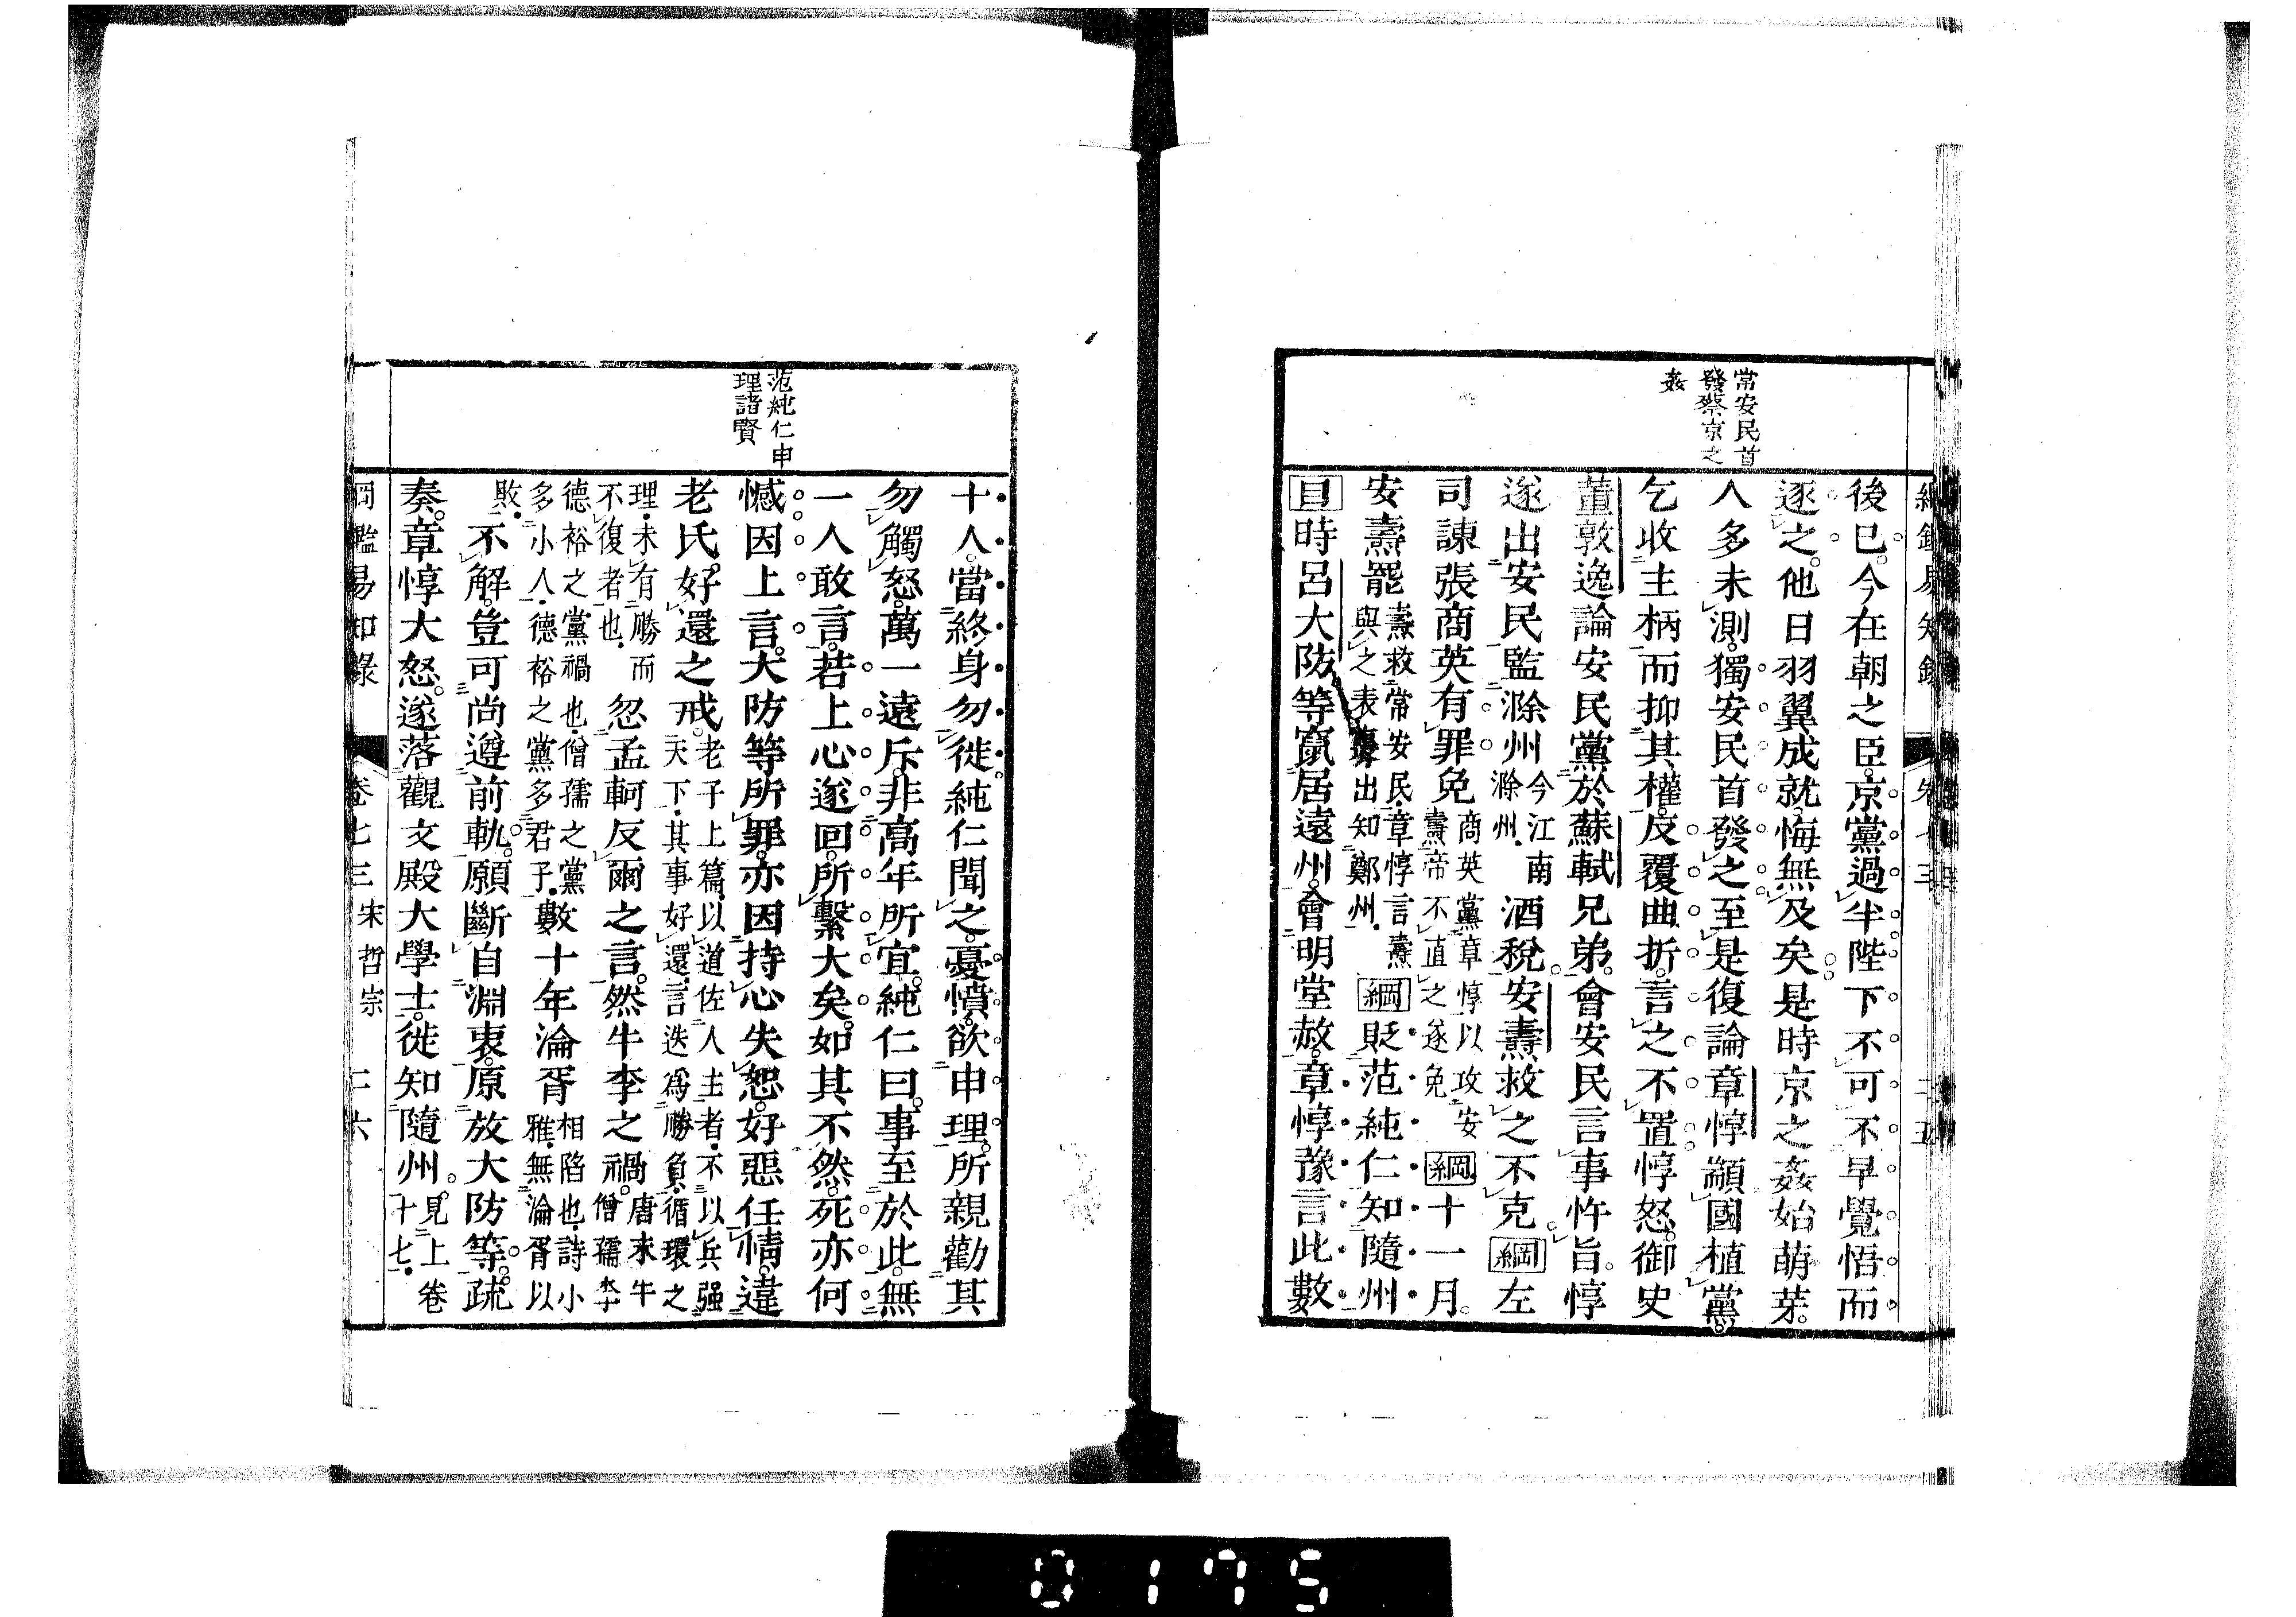 常安民首
發蔡京之
姦
後已。今在朝之臣。京黨過半。陛下不可不早覺悟而
逐之。他日羽翼成就。悔無及矣。是時京之姦始萌芽。
人多未測。獨安民首發之。至是復論章惇顓國植黨。
乞收主柄而抑其權。反覆曲折。言之不置。惇怒。御史
董敦逸論安民黨於蘇軾兄弟。會安民言事忤旨。惇
遂出安民監滁州今江南滁州。酒稅。安燾救之不克。綱左
司諫張商英有罪免商英黨章惇以攻安燾帝不直之遂免綱十一月。
安燾罷燾救常安民。章惇言燾與之表裏出知鄭州。綱貶范純仁知隨州
目時呂大防等竄居遠州。會明堂赦。章惇豫言此數
范純仁申
理諸賢
十人。當終身勿徙。純仁聞之。憂憤。欲申理。所親勸其
勿觸怒。萬一遠斥。非高年所宜。純仁曰。事至於此。無
一人敢言。若上心遂回。所繫大矣。如其不然。死亦何
憾。因上言。大防等所罪。亦因持心失恕。好惡任情。違
老氏。好還之戒。老子上篇。以道佐人主者。不以兵强天下。其事好還。言迭爲勝負。循環之
理。未有勝而不復者也。忽孟軻反爾之言。然牛李之禍。唐末牛僧孺李
德裕之黨禍也。僧孺之黨多小人。德裕之黨多君子。數十年淪胥相陷也。詩小雅。無淪胥以
敗。不解。豈可尚遵前軌。願斷自淵衷。原放大防等。疏
奏。章惇大怒。遂落觀文殿大學士。徙知隨州。見上卷十七。
綱鑑易知錄 卷七三 宋哲宗 二六
0175